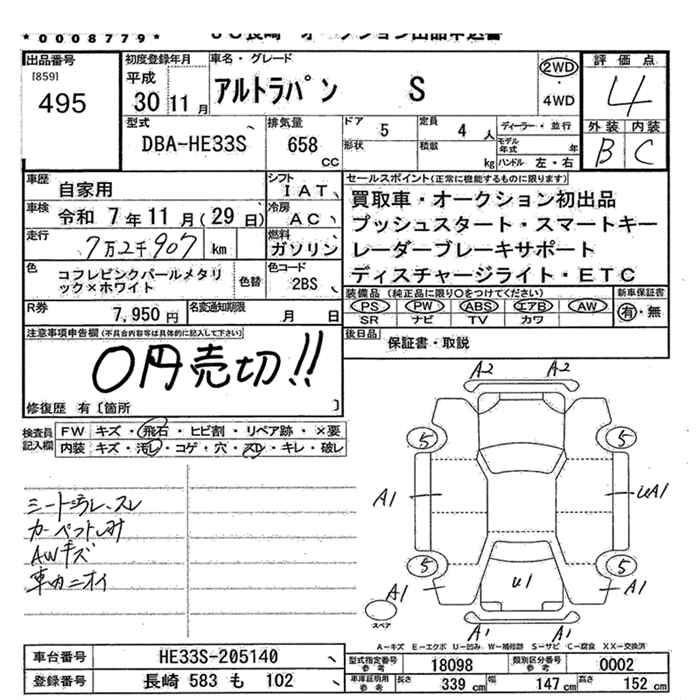 *0008779*
JU長崎 オークション出品申込書
出品番号
[859]
495
初度登録年月
平成
30 11月
車名・グレード
アルトラパン S
2WD
・
4WD
評価点
4
外装 内装
B C
型式
DBA-HE33S
排気量
658
cc
ドア
5
形状
定員
4人
積載
kg
ディーラー・並行
モデル年式 年
ハンドル 左・右
車歴
自家用
シフト
IAT
車検
令和 7年11月(29日)
冷房
AC
走行
7万2千907 km
燃料
ガソリン
色
コフレピンクパールメタリック×ホワイト
色替
色コード
2BS
R券
7,950円
名変通知期限
月 日
セールスポイント(正常に機能するものに限ります)
買取車・オークション初出品
プッシュスタート・スマートキー
レーダーブレーキサポート
ディスチャージライト・ETC
装備品(純正品に限り○をつけてください)
PS PW ABS エアB AW
SR ナビ TV カワ
新車保証書
有・無
後日品
保証書・取説
注意事項申告欄(不具合内容等は具体的に記入して下さい)
0円売切!!
修復歴 有〔箇所 〕
検査員記入欄
FW キズ・飛石・ヒビ割・リペア跡・×要
内装 キズ・汚レ・コゲ・穴・スレ・キレ・破レ
シート汚レ、スレ
カーペットしみ
AWキズ
車内ニオイ
A2 A2
5 5
A1 UA1
5 5
A1 U1 A1
スペア
A1 A1
A-キズ E-エクボ U-凹み W-補修跡 S-サビ C-腐食 XX-交換済
車台番号
HE33S-205140
登録番号
長崎 583 も 102
型式指定番号
参考
18098
類別区分番号
参考
0002
車庫証明用
参考
長さ 339 cm 幅 147 cm 高さ 152 cm